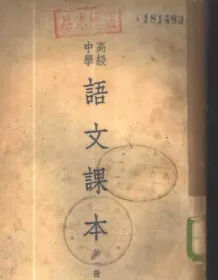 181483
高級
中學
語文課本
冊